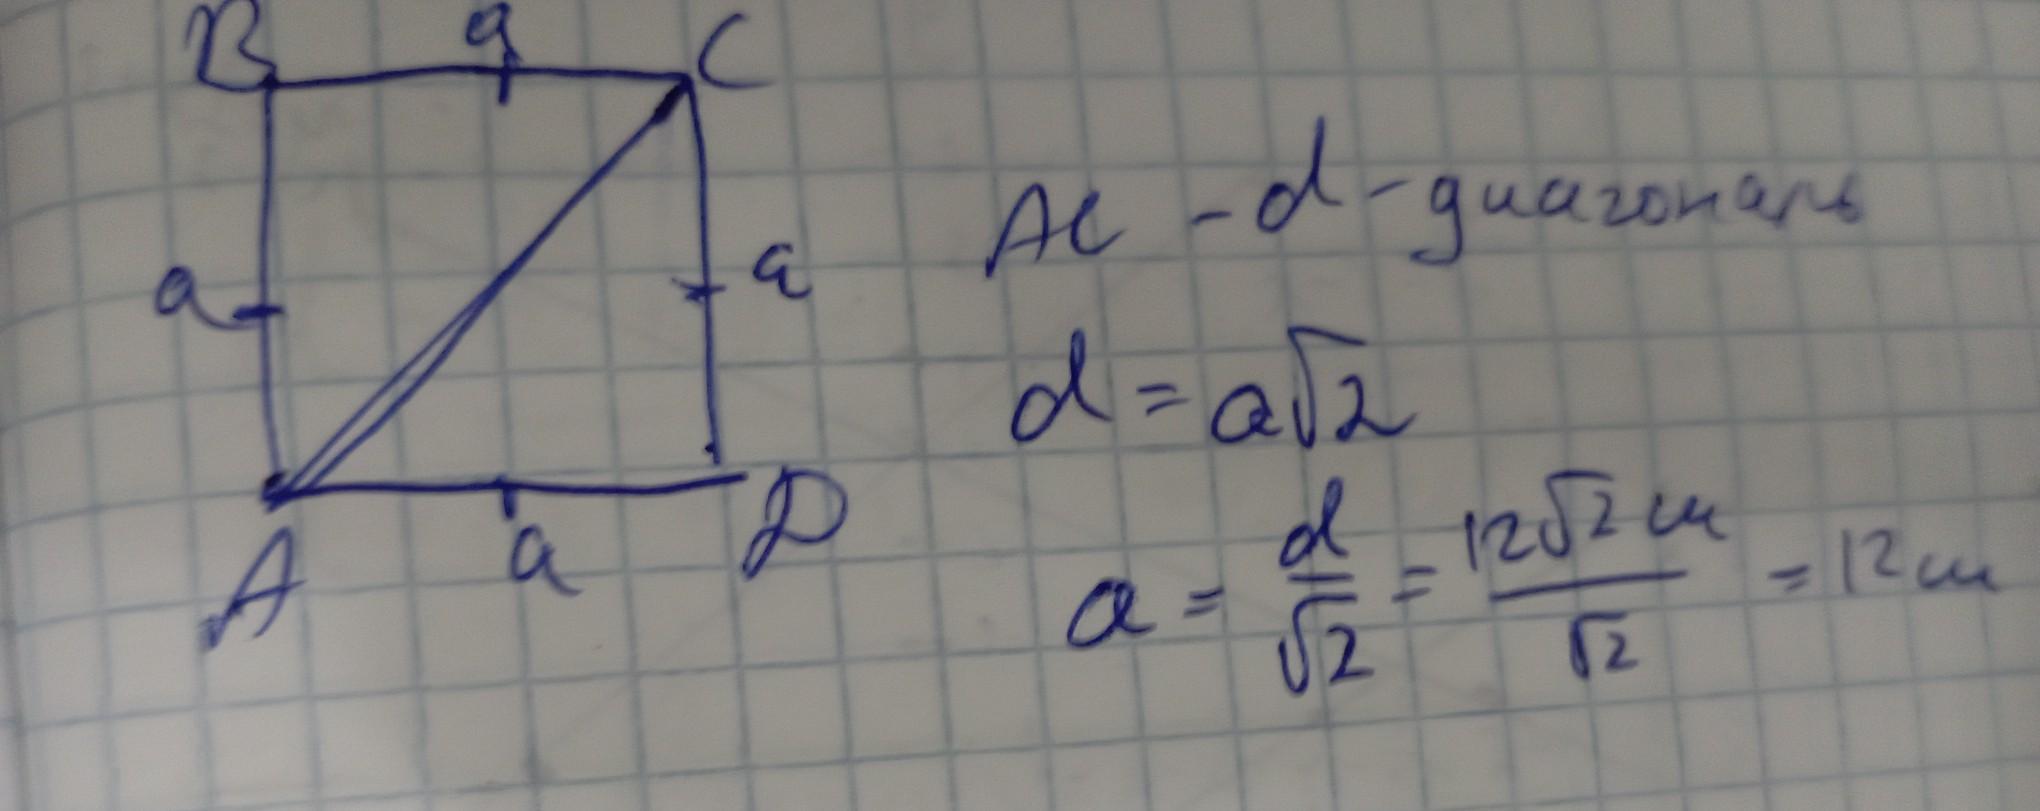 B a C
a
a
A a D
AC - d - диагональ
d = a√2
a = d/√2 = 12√2 см/√2 = 12 см